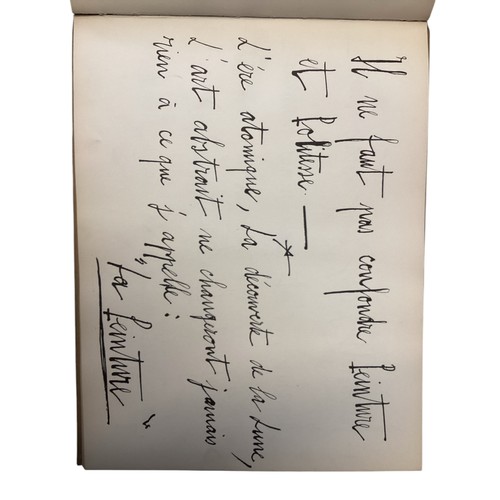 Il ne faut pas confondre Peinture
et Politesse. —
*
L'ère atomique, La découverte de la Lune,
L'art abstrait ne changeront jamais
rien à ce que j'appelle :
" La Peinture "